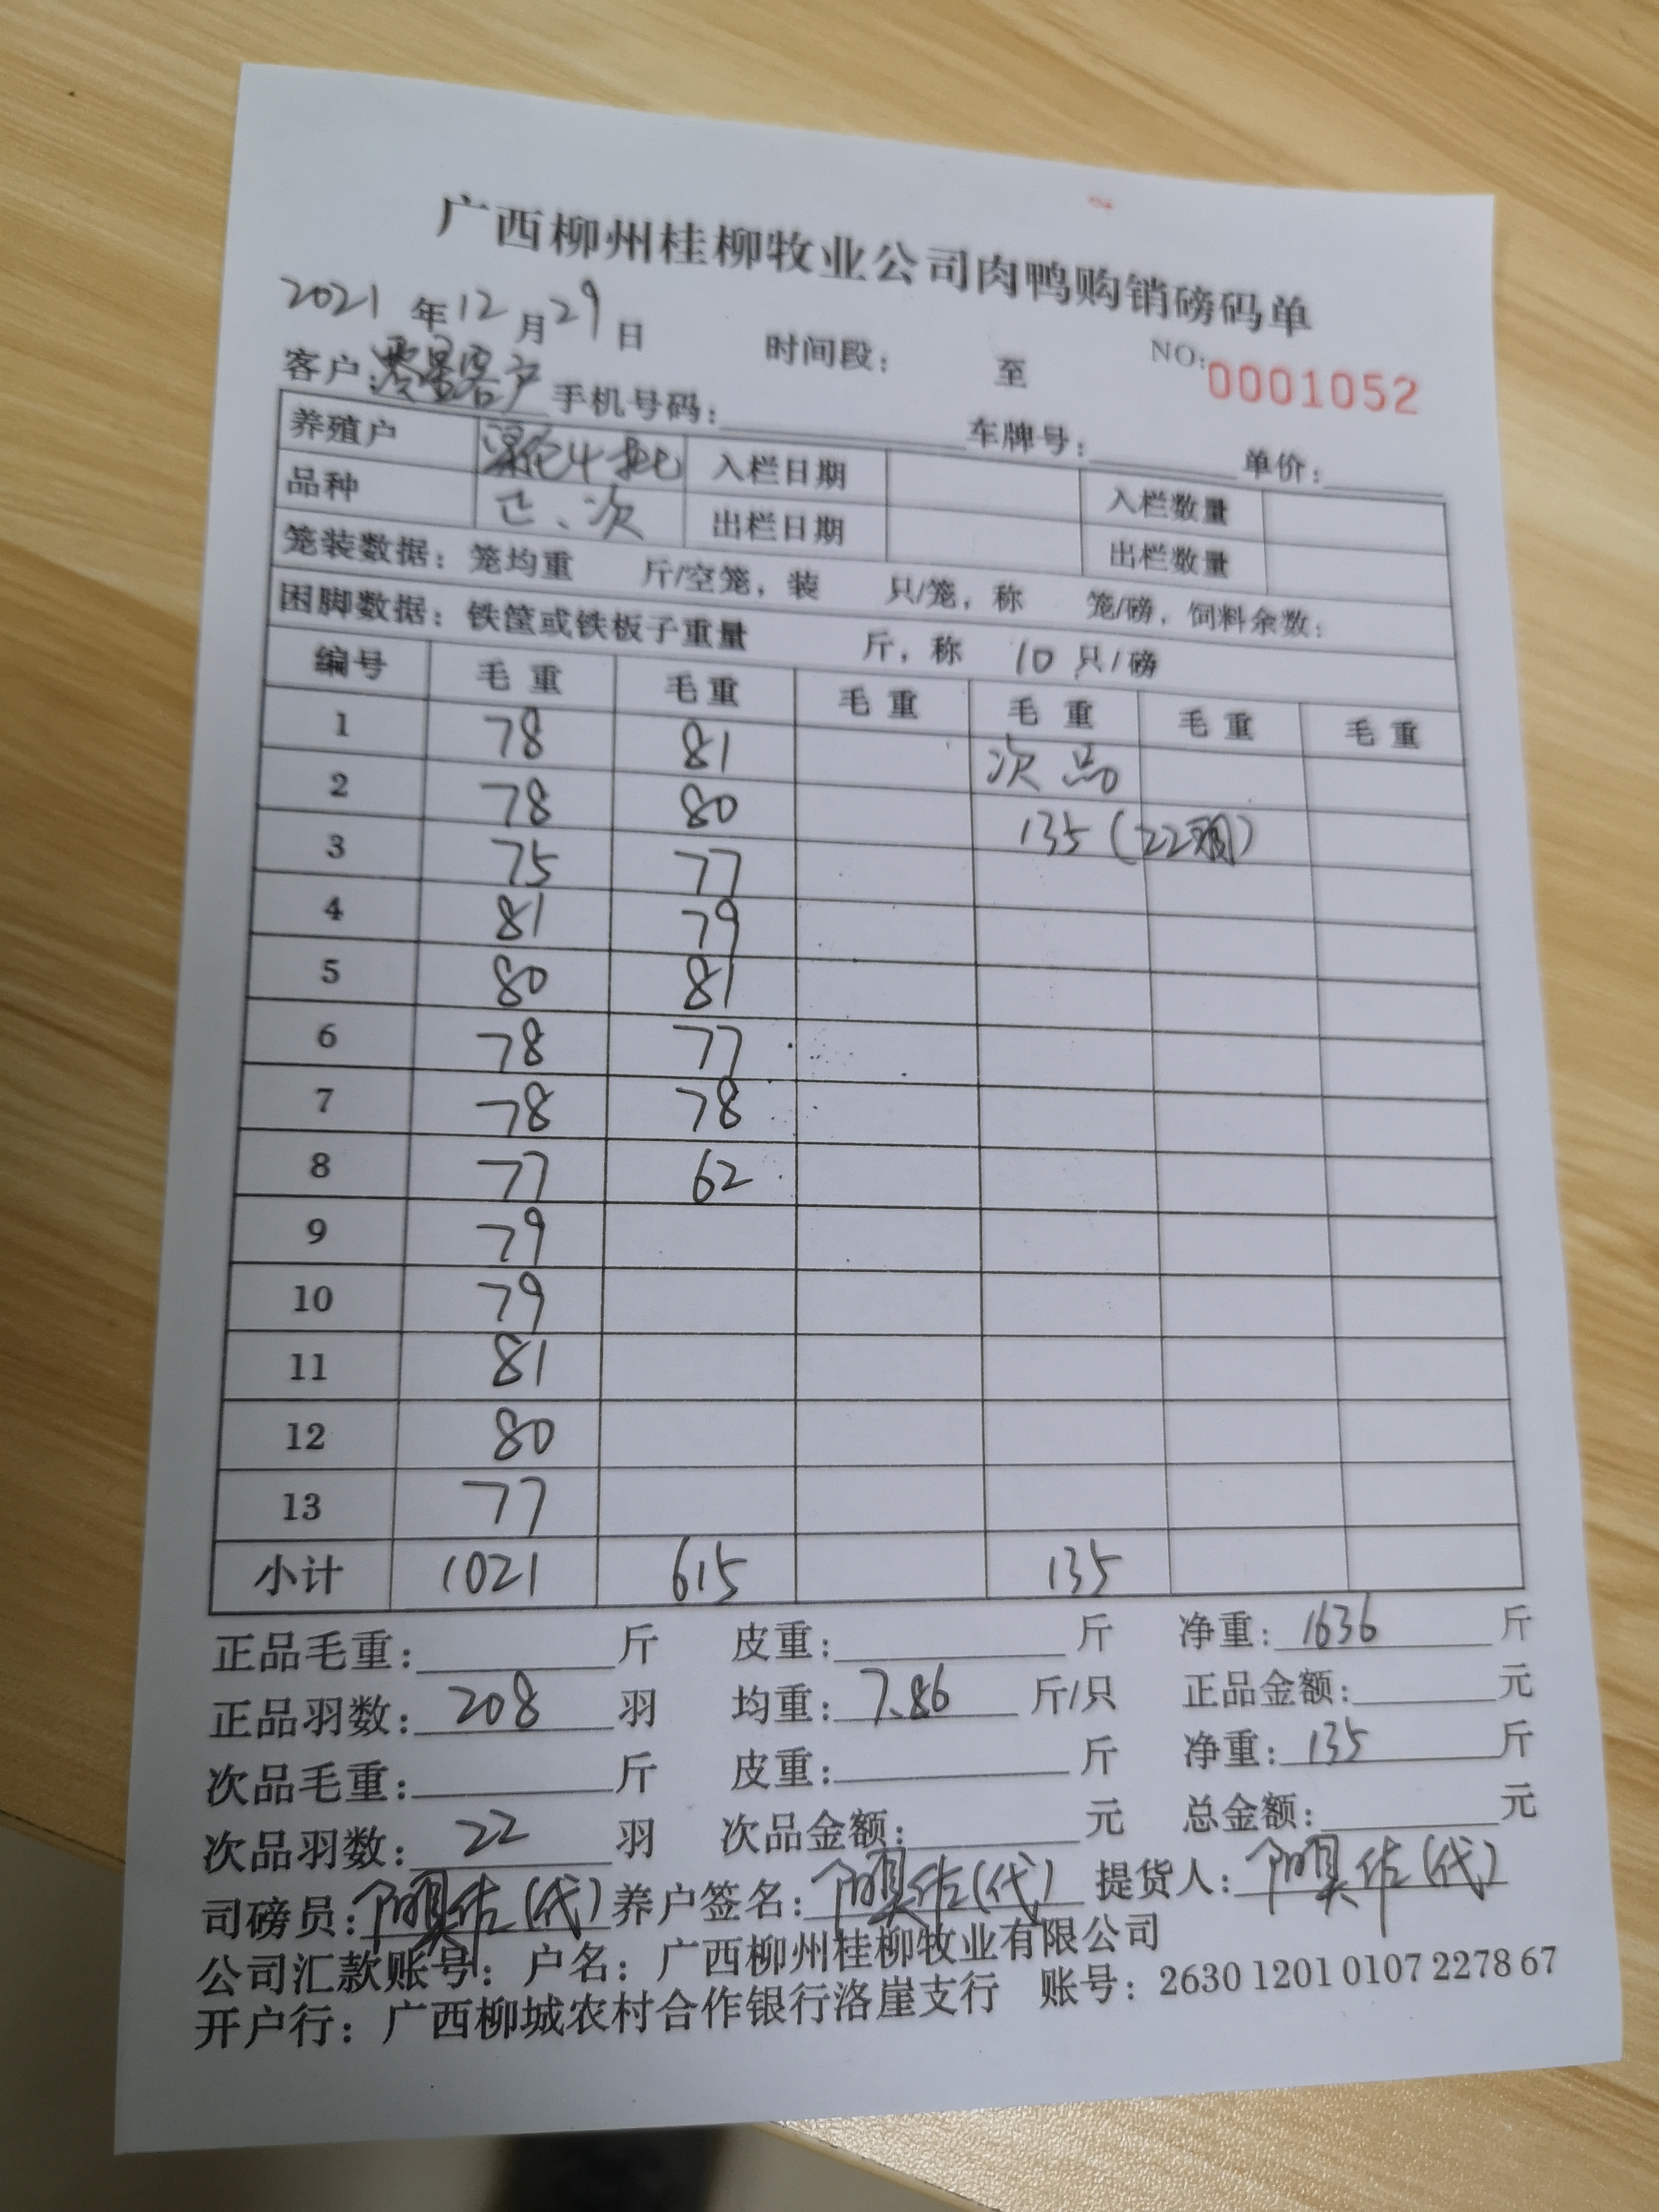 广西柳州桂柳牧业公司肉鸭购销磅码单
2021年12月29日 时间段： 至 NO:0001052
客户：零星客户 手机号码： 车牌号： 单价：
养殖户 4批 入栏日期 入栏数量
品种 正、次 出栏日期 出栏数量
笼装数据：笼均重 斤/空笼，装 只/笼，称 笼/磅，饲料余数：
困脚数据：铁筐或铁板子重量 斤，称 10只/磅
编号 毛重 毛重 毛重 毛重 毛重 毛重
1 78 81 次品
2 78 80 135（22羽）
3 75 77
4 81 79
5 80 81
6 78 77
7 78 78
8 77 62
9 79
10 79
11 81
12 80
13 77
小计 1021 615 135
正品毛重： 斤 皮重： 斤 净重：1636 斤
正品羽数：208 羽 均重：7.86 斤/只 正品金额： 元
次品毛重： 斤 皮重： 斤 净重：135 斤
次品羽数：22 羽 次品金额： 元 总金额： 元
司磅员：（代） 养户签名：（代） 提货人：（代）
公司汇款账号：户名：广西柳州桂柳牧业有限公司
开户行：广西柳城农村合作银行洛崖支行 账号：2630 1201 0107 2278 67